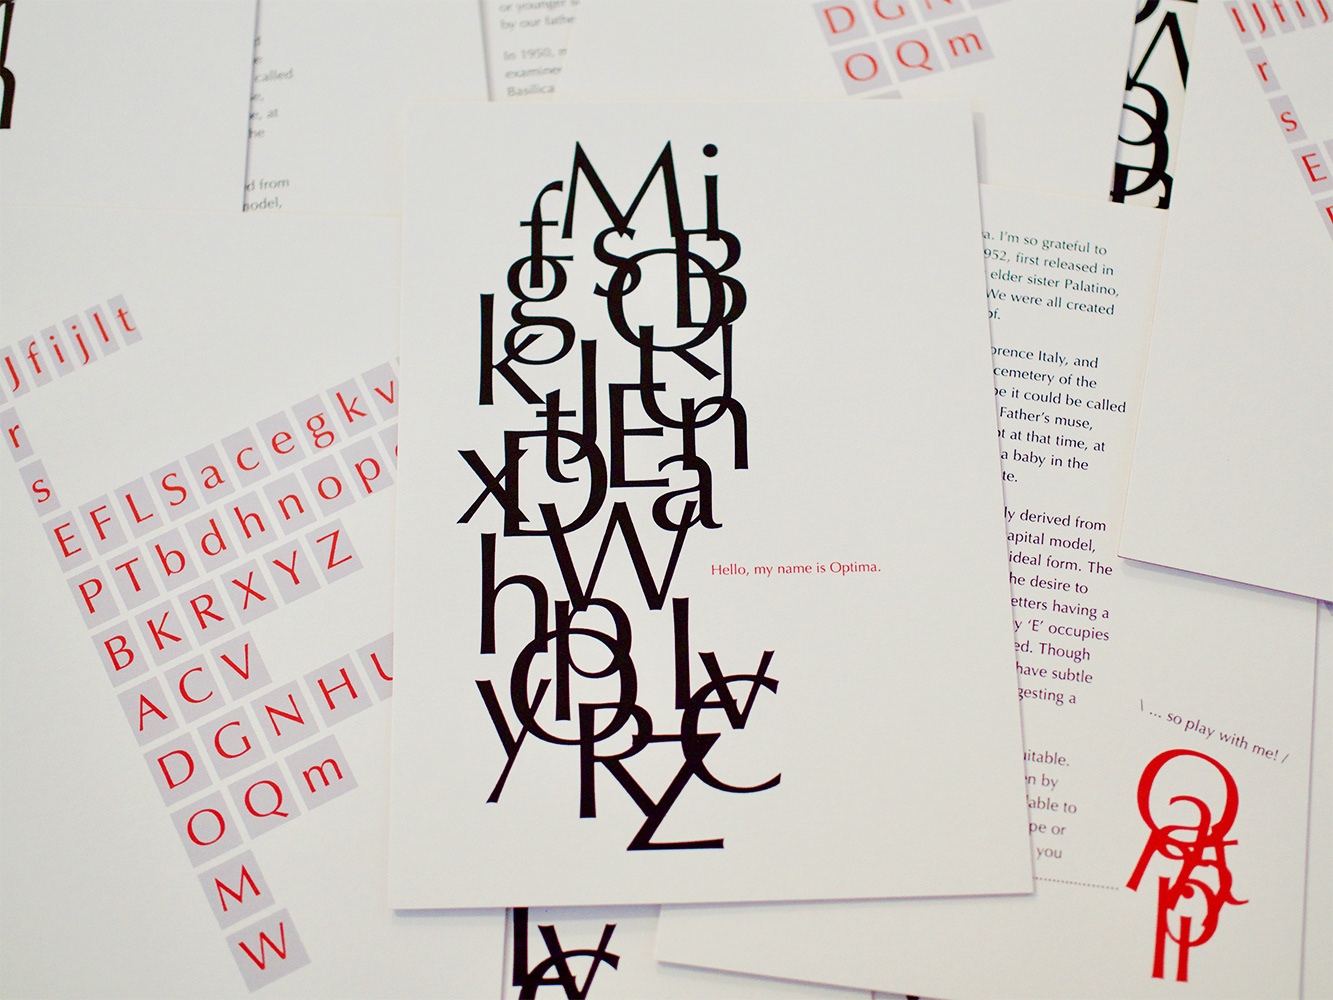 or younger
by our fathe
In 1950,
examine
Basilica
called
, at
he
d from
nodel,
D G N
O Q m
I J f i j l
r
s
E
M i
f s B
g O
k R J
t J E n
x D a
W
h p l v
y O R C
Y Z
Hello, my name is Optima.
J f i j l t
r
s
E F L S a c e g k v
P T b d h n o p
B K R X Y Z
A C V
D G N H U
O Q m
M
W
a. I'm so grateful to
952, first released in
elder sister Palatino,
We were all created
of.
orence Italy, and
cemetery of the
be it could be called
Father's muse,
ot at that time, at
a baby in the
te.
ly derived from
apital model,
ideal form. The
he desire to
etters having a
y 'E' occupies
ed. Though
have subtle
gesting a
uitable.
n by
lable to
pe or
you
\ ... so play with me! /